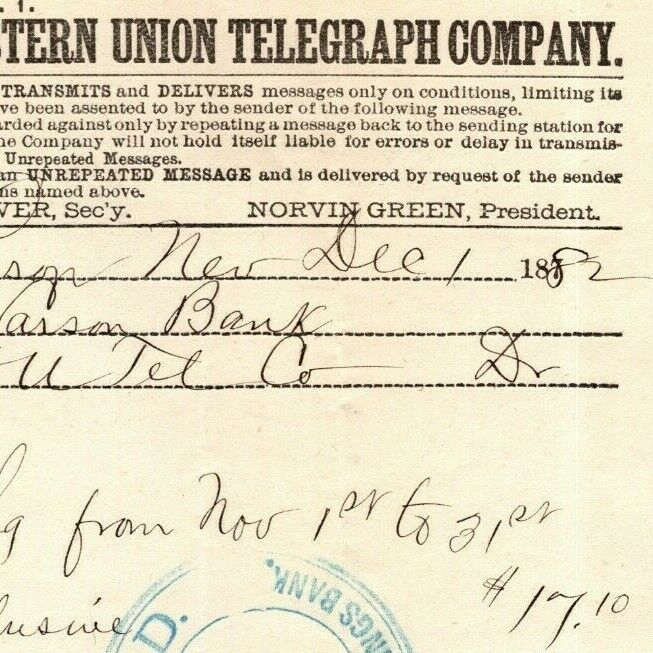 . 1.
STERN UNION TELEGRAPH COMPANY.
TRANSMITS and DELIVERS messages only on conditions, limiting its
ve been assented to by the sender of the following message.
arded against only by repeating a message back to the sending station for
he Company will not hold itself liable for errors or delay in transmis-
Unrepeated Messages.
an UNREPEATED MESSAGE and is delivered by request of the sender
ns named above.
VER, Sec'y. NORVIN GREEN, President.
rson Nev Dec 1 1882
Carson Bank
U Tel Co Dr
g from Nov 1st to 31st
$17.10
lusive
D.
NGS BANK.